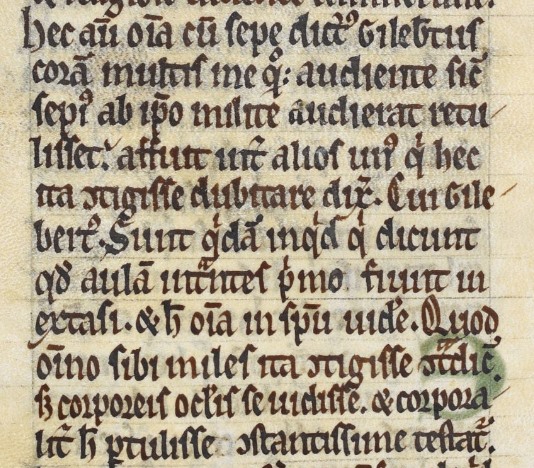 hec aū oīa cū sepe dict᷒ Gileb̄tus
corā multis me q̊ꝫ audiente sic̄
sepi᷒ ab ip̄o milite audierat retu
lisset. affuit int̄ alios un᷒ q̇ hec
ita ↄtigisse dubitare dix̄. Cui Gile
bert᷒. Sunt q̇dā inq̇d q̇ dicunt
qd̄ aulā int̄ntes ṗmo fiunt in
extasi. & h̄ oīa in sp̄u uide̾. Quod
oīno sibi miles ita ↄtigisse ↄt̄dic̄.
sꝫ corporeis ocl̄is se uidisse. & corpora
lit̄ h̄ ꝑtulisse ↄstantissime testat̾.